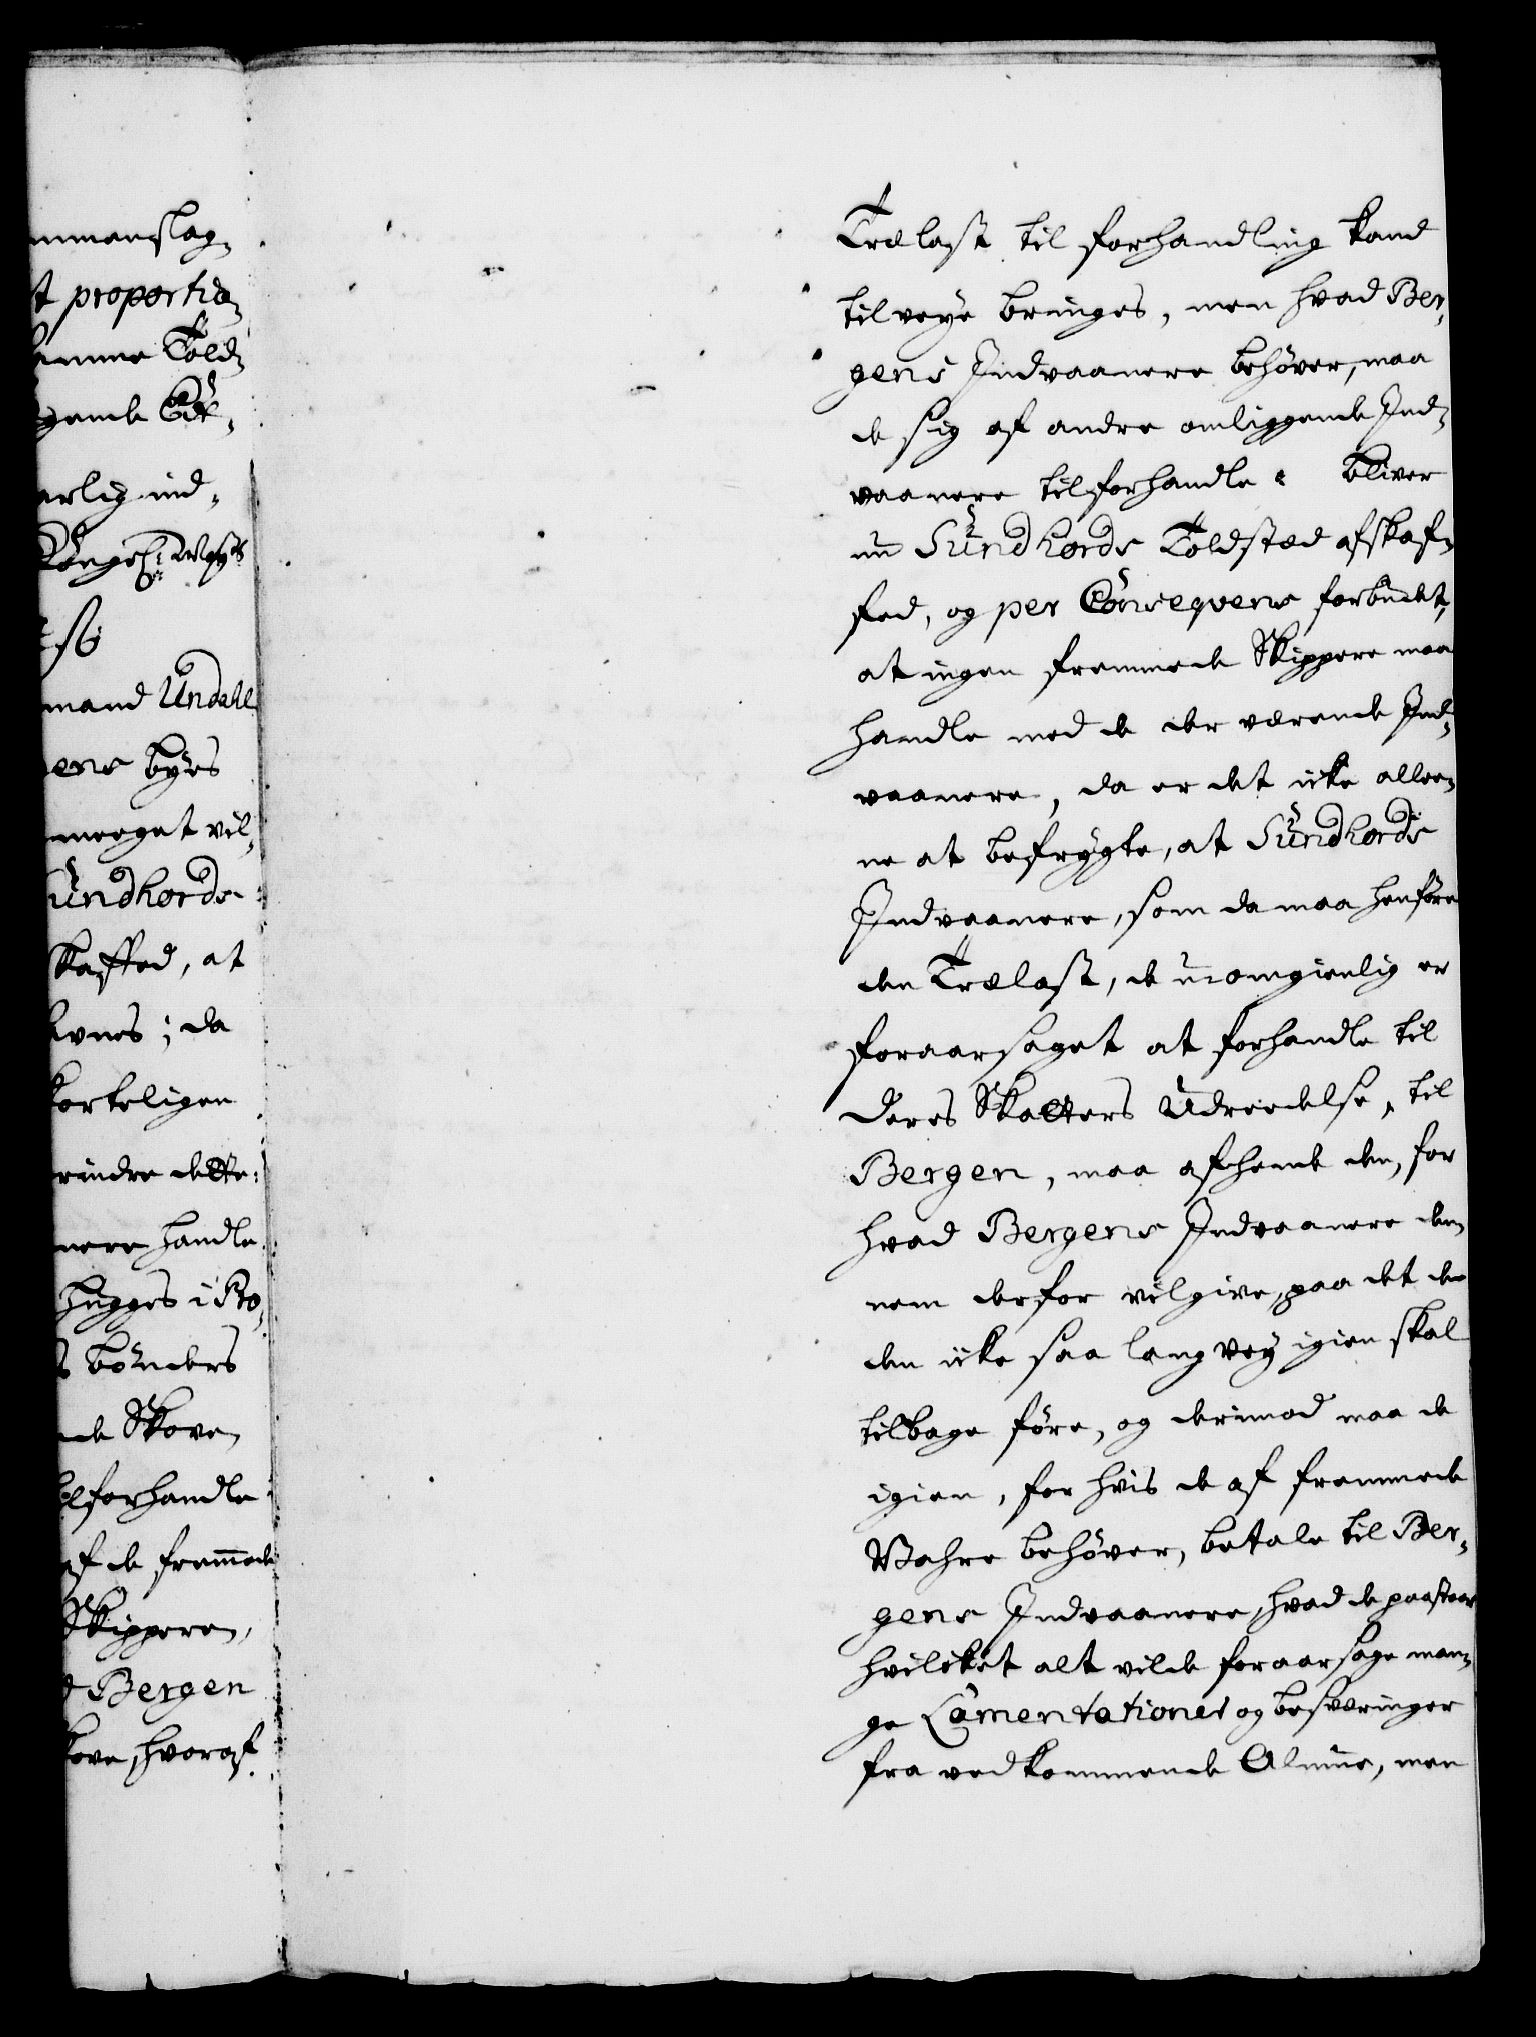 mmenslag,
t proportio,
amme Told,
arlig ind,
mand Undall
ens byes
meeget vil,
undhords
skaffed, at
fvnes ; da
korteligen
rindre dette:
nere handle,
hugges i Ro,
s bönders
nde Skove,
lforhandle
af de fremmede
Skippere,
d Bergen
kove, hvoraf
Trælast til forhandling kand
tilveye bringes, men hvad Ber,
gens Indvaanere behöver, maa
de sig af andre omliggende Ind,
vaanere tilforhandle. bliver
nu Sundhords Toldsted afskaf,
fed, og per Conseqvens forbudet,
at ingen fremmede Skippere maa
handle med de der værende Ind,
vaanere, da er det icke allee,
ne at befrygte, at Sundhords
Indvaanere, som da maa henföre
den Trælast, de uomgienlig er
foraarsaget at forhandle til
deres Skatters Udreedelse, til
Bergen, maa afhende den, for
hvad Bergens Indvaanere den,
nem derfor vil give, paa det de
den icke saa lang vey igien skal
tilbage före, og derimod maa de
igien, for hvis de af fremmede
Vahre behöver, betale til Ber,
gens Indvaanere, hvad de paastaar
hvilcket alt vilde foraarsage man,
ge Lamentationer og besværinger
fra vedkommende Almue, men